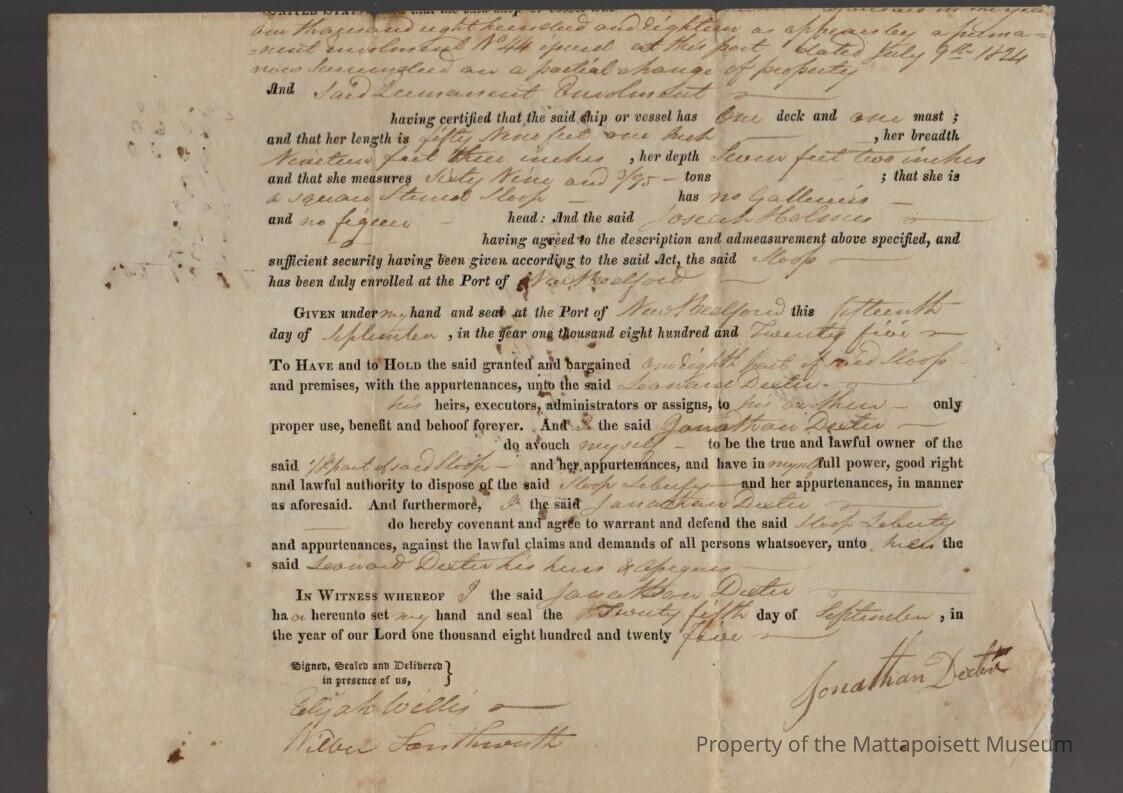 one thousand eight hundred and eighteen as appears by a perma=
=nent enrolment No 44 opened at this port dated July 9th 1824
now surrendered on a partial change of property
And said Permanent Enrolment
having certified that the said ship or vessel has One deck and one mast ;
and that her length is fifty Nine feet one Inch , her breadth
Nineteen feet three inches , her depth Seven feet two inches
and that she measures Sixty Nine and 2/95 tons ; that she is
a square Stern'd Sloop has no Galleries
and no figure head: And the said Joseah Holmes
having agreed to the description and admeasurement above specified, and
sufficient security having been given according to the said Act, the said Sloop
has been duly enrolled at the Port of New Bedford
GIVEN under my hand and seal at the Port of New Bedford this fifteenth
day of September , in the year one thousand eight hundred and Twenty five
TO HAVE and to HOLD the said granted and bargained one eighth part of said Sloop
and premises, with the appurtenances, unto the said Leonard Dexter
his heirs, executors, administrators or assigns, to his or their only
proper use, benefit and behoof forever. And I the said Jonathan Dexter
do avouch myself to be the true and lawful owner of the
said 1/8 part of said Sloop and her appurtenances, and have in myself full power, good right
and lawful authority to dispose of the said Sloop Leberty and her appurtenances, in manner
as aforesaid. And furthermore, I the said Jonathan Dexter
do hereby covenant and agree to warrant and defend the said Sloop Leberty
and appurtenances, against the lawful claims and demands of all persons whatsoever, unto him the
said Leonard Dexter his heirs & assigns
IN WITNESS WHEREOF I the said Jonathan Dexter
ha hereunto set my hand and seal the Twenty fifth day of September , in
the year of our Lord one thousand eight hundred and twenty five
Signed, Sealed and Delivered }
in presence of us,
Jonathan Dexter
Elijah Willis
Wilbur Southworth
Property of the Mattapoisett Museum